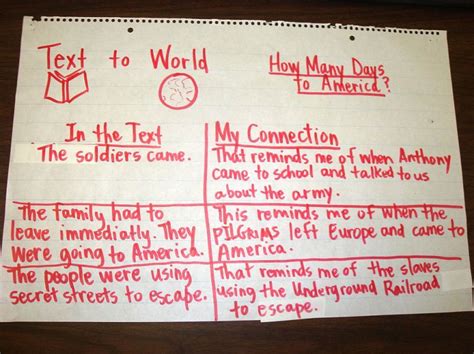 Text to World
How Many Days
to America?
In the Text
The soldiers came.
My Connection
That reminds me of when Anthony
came to school and talked to us
about the army.
The family had to
leave immediatly. They
were going to America.
This reminds me of when the
PILGRIMS left Europe and came to
America.
The people were using
secret streets to escape.
That reminds me of the slaves
using the Underground Railroad
to escape.